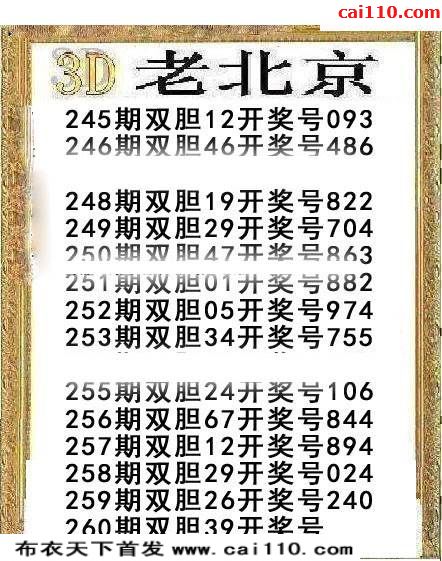 cai110.com
3D 老北京
245期双胆12开奖号093
246期双胆46开奖号486
248期双胆19开奖号822
249期双胆29开奖号704
250期双胆47开奖号863
251期双胆01开奖号882
252期双胆05开奖号974
253期双胆34开奖号755
255期双胆24开奖号106
256期双胆67开奖号844
257期双胆12开奖号894
258期双胆29开奖号024
259期双胆26开奖号240
260期双胆39开奖号
布衣天下首发 www.cai110.com